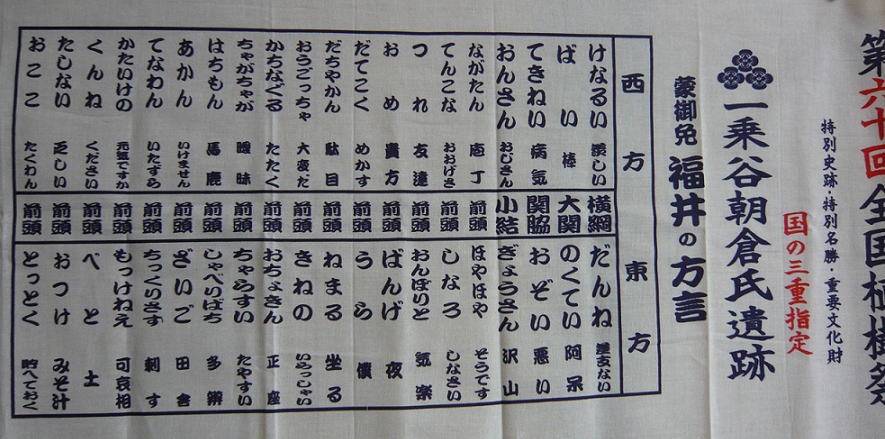 第六十回全国植樹祭
特別史跡・特別名勝・重要文化財
国の三重指定
一乗谷朝倉氏遺跡
蒙御免 福井の方言
西方 東方
けなるい 羨しい 横綱 だんね 差支ない
ばい 棒 大関 のくてい 阿呆
てきねい 病気 関脇 おぞい 悪い
おんさん おじさん 小結 ぎょうさん 沢山
ながたん 庖丁 前頭 ほやほや そうです
てんこな おおげさ 前頭 しなろ しなさい
つれ 友達 前頭 おんぼりと 気楽
おめ 貴方 前頭 ばんげ 夜
だてこく めかす 前頭 うら 僕
だちゃかん 駄目 前頭 ねまる 坐る
おうごっちゃ 大変だ 前頭 きねの いらっしゃい
かちなぐる たたく 前頭 おちょきん 正座
ちゃがちゃが 曖昧 前頭 ちゃらすい たやすい
はちもん 馬鹿 前頭 しゃべりばち 多辯
あかん いけません 前頭 ざいご 田舎
てなわん いたずら 前頭 ちっくりさす 刺す
かたいけの 元気ですか 前頭 もっけねえ 可哀相
くんね ください 前頭 べと 土
たしない 乏しい 前頭 おつけ みそ汁
おここ たくわん 前頭 とっとく 貯へておく